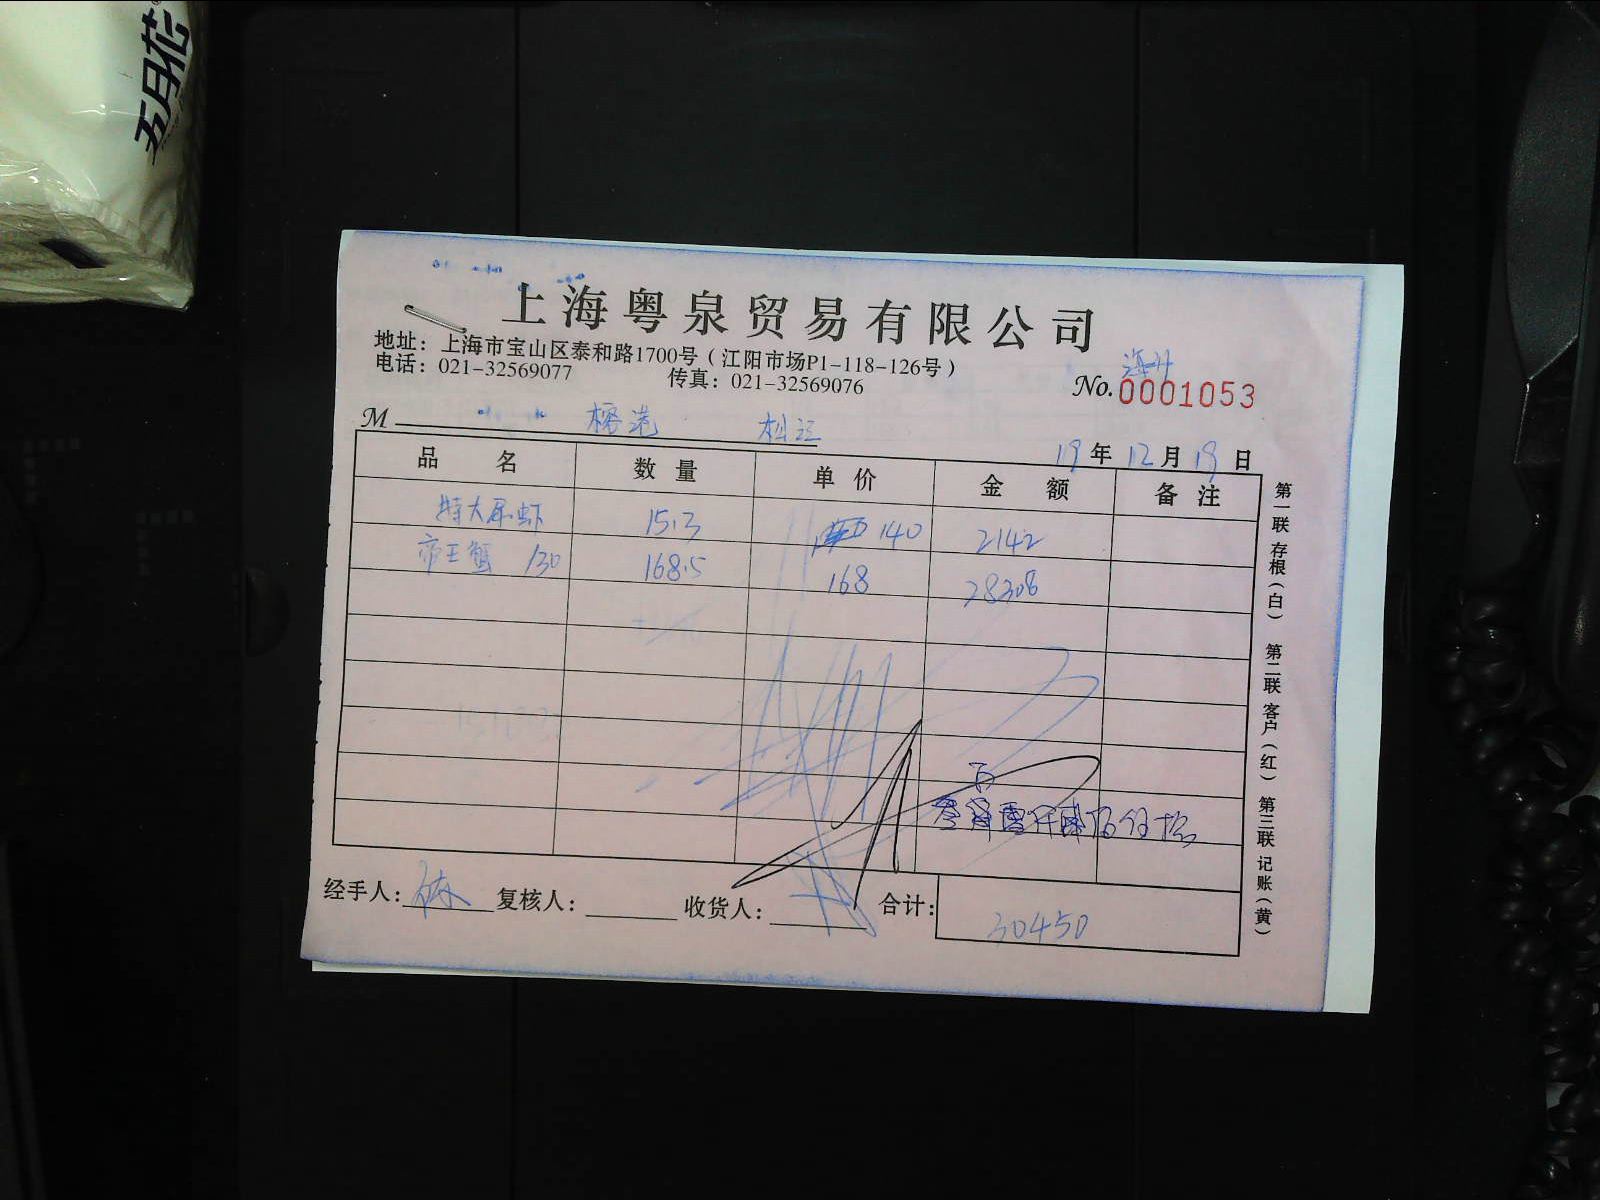 五月花
上海粤泉贸易有限公司
地址：上海市宝山区泰和路1700号（江阳市场P1-118-126号）
电话：021-32569077 传真：021-32569076
No. 0001053
M 榕港 松江
19年12月19日
品名 数量 单价 金额 备注
特大尿虾 15.3 140 2142
帝王蟹 130 168.5 168 28308
百
经手人： 复核人： 收货人： 合计： 30450
第一联 存根（白） 第二联 客户（红） 第三联 记账（黄）